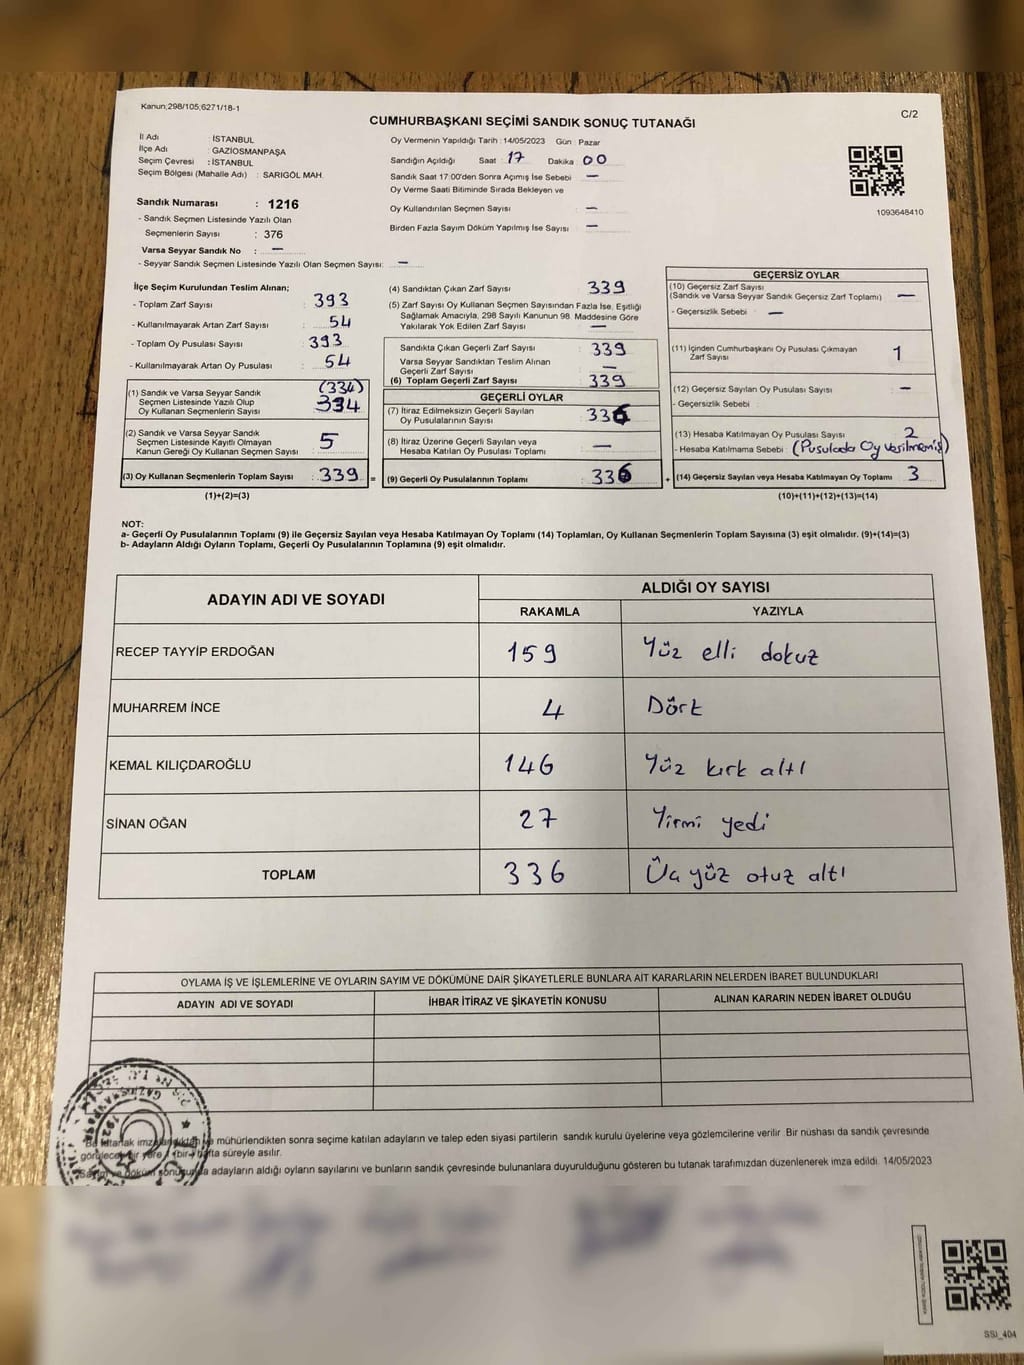 Kanun;298/105;6271/18-1
C/2
CUMHURBAŞKANI SEÇİMİ SANDIK SONUÇ TUTANAĞI
İl Adı : İSTANBUL
İlçe Adı : GAZİOSMANPAŞA
Seçim Çevresi : İSTANBUL
Seçim Bölgesi (Mahalle Adı) : SARIGÖL MAH.
Sandık Numarası : 1216
- Sandık Seçmen Listesinde Yazılı Olan
Seçmenlerin Sayısı : 376
Varsa Seyyar Sandık No : —
- Seyyar Sandık Seçmen Listesinde Yazılı Olan Seçmen Sayısı: —
Oy Vermenin Yapıldığı Tarih : 14/05/2023 Gün : Pazar
Sandığın Açıldığı Saat : 17 Dakika 00
Sandık Saat 17:00'den Sonra Açımış İse Sebebi : —
Oy Verme Saati Bitiminde Sırada Bekleyen ve
Oy Kullandırılan Seçmen Sayısı : —
Birden Fazla Sayım Döküm Yapılmış İse Sayısı : —
1093648410
İlçe Seçim Kurulundan Teslim Alınan;
- Toplam Zarf Sayısı : 393
- Kullanılmayarak Artan Zarf Sayısı : 54
- Toplam Oy Pusulası Sayısı : 393
- Kullanılmayarak Artan Oy Pusulası : 54
(1) Sandık ve Varsa Seyyar Sandık (334)
Seçmen Listesinde Yazılı Olup 334
Oy Kullanan Seçmenlerin Sayısı
(2) Sandık ve Varsa Seyyar Sandık
Seçmen Listesinde Kayıtlı Olmayan 5
Kanun Gereği Oy Kullanan Seçmen Sayısı
(3) Oy Kullanan Seçmenlerin Toplam Sayısı : 339 =
(1)+(2)=(3)
(4) Sandıktan Çıkan Zarf Sayısı : 339
(5) Zarf Sayısı Oy Kullanan Seçmen Sayısından Fazla İse, Eşitliği
Sağlamak Amacıyla, 298 Sayılı Kanunun 98. Maddesine Göre
Yakılarak Yok Edilen Zarf Sayısı : —
Sandıkta Çıkan Geçerli Zarf Sayısı : 339
Varsa Seyyar Sandıktan Teslim Alınan
Geçerli Zarf Sayısı : —
(6) Toplam Geçerli Zarf Sayısı : 339
GEÇERLİ OYLAR
(7) İtiraz Edilmeksizin Geçerli Sayılan
Oy Pusulalarının Sayısı : 336
(8) İtiraz Üzerine Geçerli Sayılan veya
Hesaba Katılan Oy Pusulası Toplamı : —
(9) Geçerli Oy Pusulalarının Toplamı : 336 +
GEÇERSİZ OYLAR
(10) Geçersiz Zarf Sayısı
(Sandık ve Varsa Seyyar Sandık Geçersiz Zarf Toplamı) : —
- Geçersizlik Sebebi : —
(11) İçinden Cumhurbaşkanı Oy Pusulası Çıkmayan
Zarf Sayısı : 1
(12) Geçersiz Sayılan Oy Pusulası Sayısı : —
- Geçersizlik Sebebi :
(13) Hesaba Katılmayan Oy Pusulası Sayısı : 2
- Hesaba Katılmama Sebebi : (Pusulada Oy Verilmemiş)
(14) Geçersiz Sayılan veya Hesaba Katılmayan Oy Toplamı : 3
(10)+(11)+(12)+(13)=(14)
NOT:
a- Geçerli Oy Pusulalarının Toplamı (9) ile Geçersiz Sayılan veya Hesaba Katılmayan Oy Toplamı (14) Toplamları, Oy Kullanan Seçmenlerin Toplam Sayısına (3) eşit olmalıdır. (9)+(14)=(3)
b- Adayların Aldığı Oyların Toplamı, Geçerli Oy Pusulalarının Toplamına (9) eşit olmalıdır.
ADAYIN ADI VE SOYADI ALDIĞI OY SAYISI
RAKAMLA YAZIYLA
RECEP TAYYİP ERDOĞAN 159 Yüz elli dokuz
MUHARREM İNCE 4 Dört
KEMAL KILIÇDAROĞLU 146 Yüz kırk altı
SİNAN OĞAN 27 Yirmi yedi
TOPLAM 336 Üç yüz otuz altı
OYLAMA İŞ VE İŞLEMLERİNE VE OYLARIN SAYIM VE DÖKÜMÜNE DAİR ŞİKAYETLERLE BUNLARA AİT KARARLARIN NELERDEN İBARET BULUNDUKLARI
ADAYIN ADI VE SOYADI İHBAR İTİRAZ VE ŞİKAYETİN KONUSU ALINAN KARARIN NEDEN İBARET OLDUĞU
Bu tutanak imzalandıktan ve mühürlendikten sonra seçime katılan adayların ve talep eden siyasi partilerin sandık kurulu üyelerine veya gözlemcilerine verilir. Bir nüshası da sandık çevresinde
görülecek bir yere 1 (bir) hafta süreyle asılır.
Sayım ve döküm sonucunda adayların aldığı oyların sayılarını ve bunların sandık çevresinde bulunanlara duyurulduğunu gösteren bu tutanak tarafımızdan düzenlenerek imza edildi. 14/05/2023
SSI_404